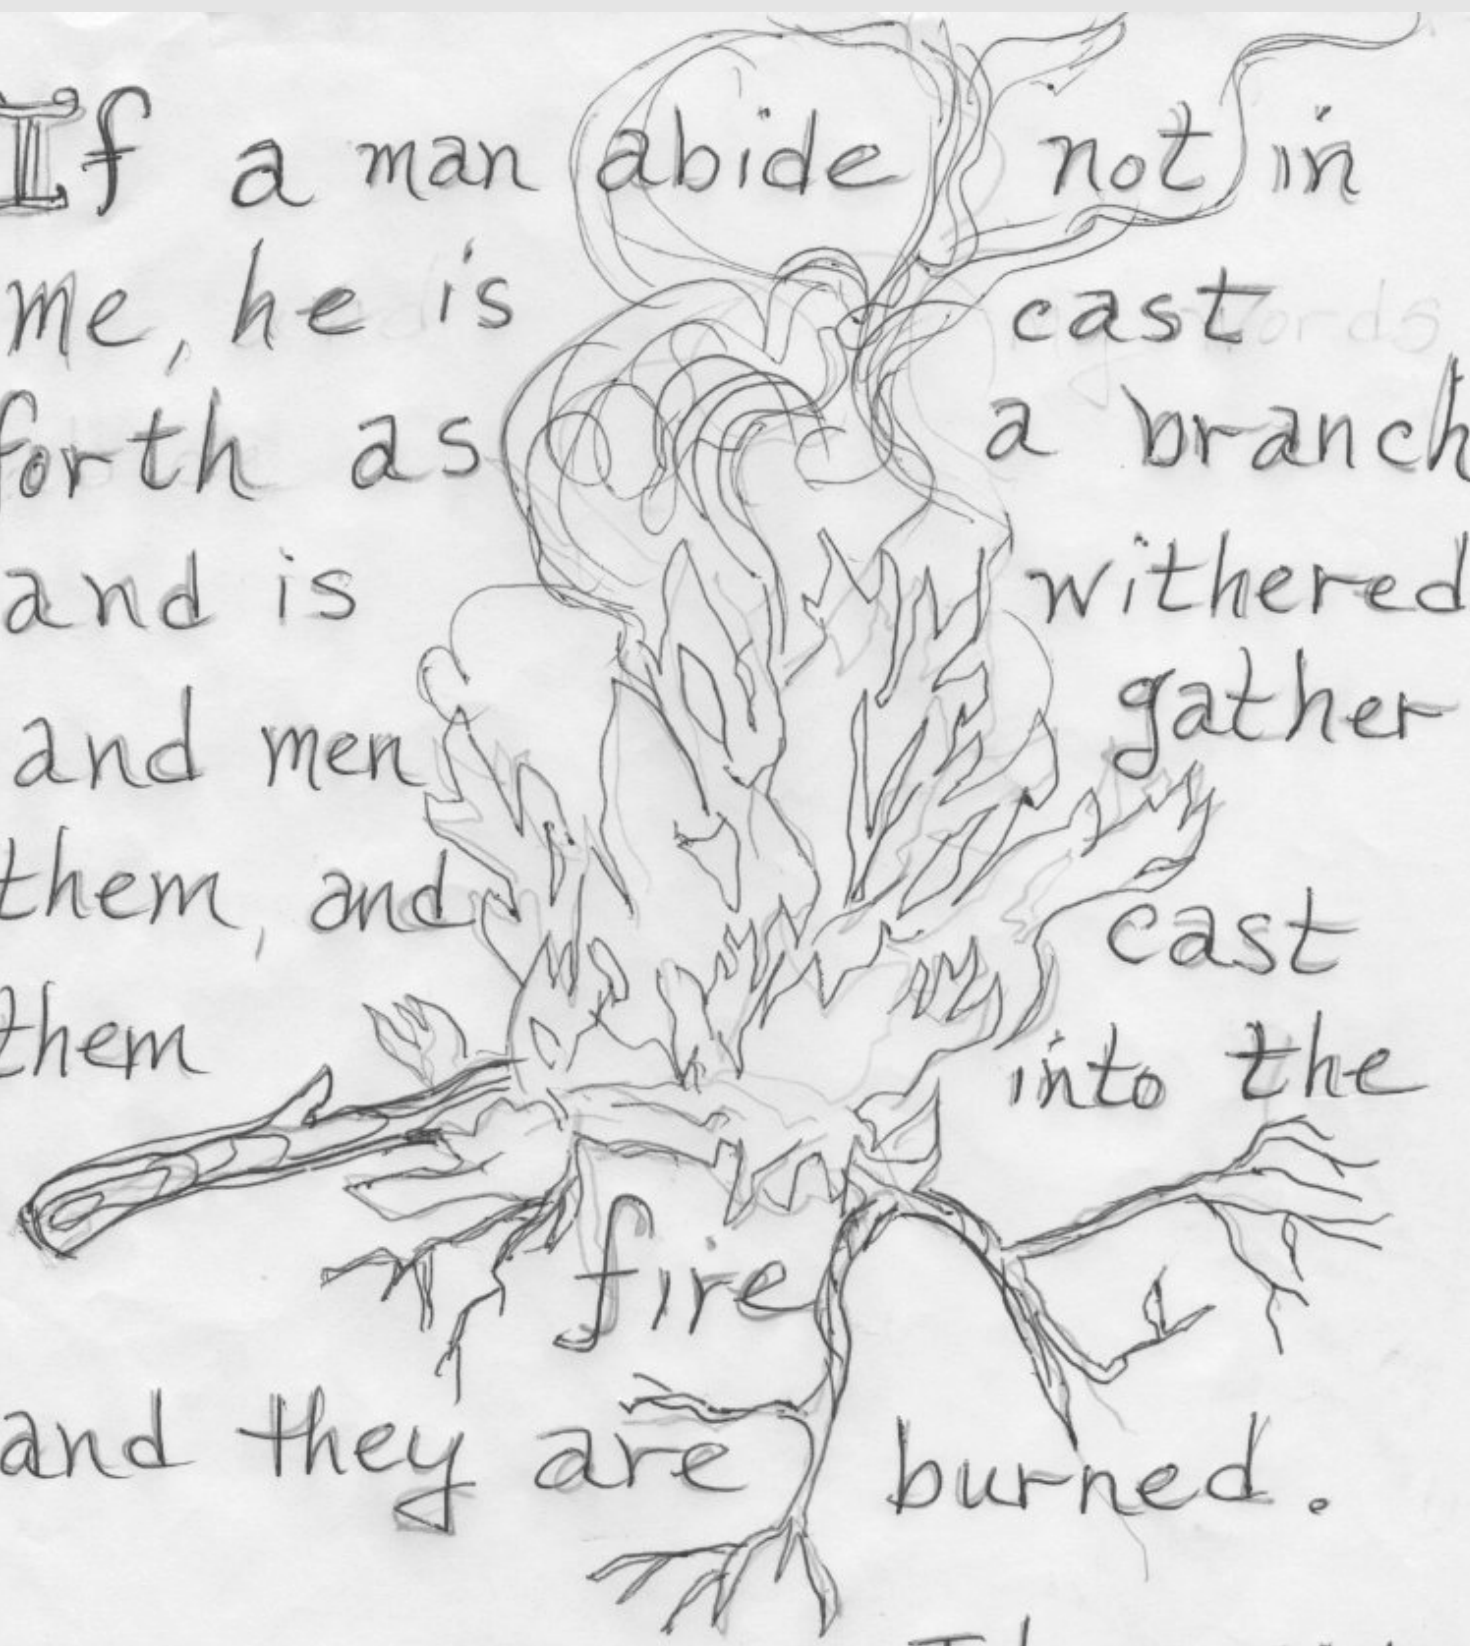 If a man abide not in
me, he is cast
forth as a branch
and is withered
and men gather
them, and cast
them into the
fire
and they are burned.